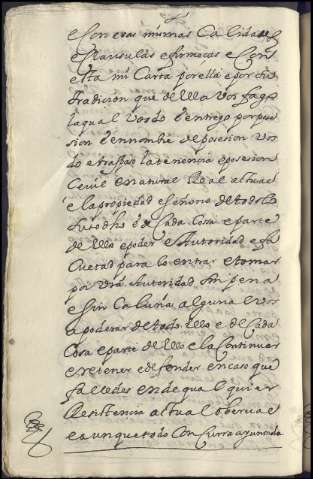 e con esas mismas Calidades
Clausulas e firmezas e Cons
esta mi Carta por ella e por la
tradicion que della vos fago
la qual vos do Y entrego por pose
sion Y en nombre de posesion vos
do e traspaso la tenencia e posesion
Cevil e natural Real actual
e la propiedad e señorio de todo lo
suso dho e de Cada Cosa e parte
de llo e poder e Autoridad e fa
Cultad para lo entrar e tomar
por vra Autoridad sin pena
e sin Calunia alguna e vos
apoderar de todo ello e de Cada
Cosa e parte de llo e la Continuar
e retener e defender en caso que
falledes ende qual quier
Resistencia actual o berual
e aunque todo Concurra ayuntada